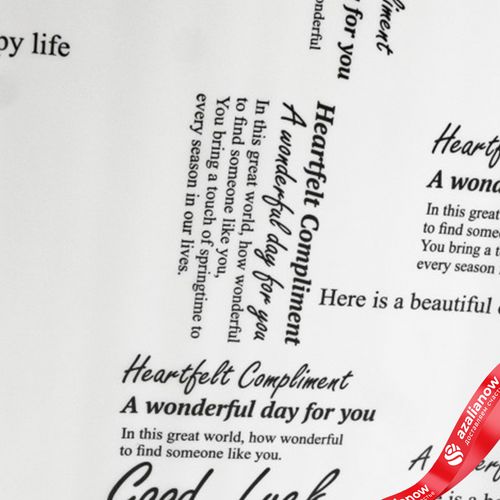 py life
liment
y for you
onderful
Heartfelt Compliment
A wonderful day for you
In this great world, how wonderful
to find someone like you,
You bring a touch of springtime to
every season in our lives.
Heartf
A wond
In this great
to find some
You bring a t
every season
Here is a beautiful
Heartfelt Compliment
A wonderful day for you
In this great world, how wonderful
to find someone like you.
Good Luck
azalianow
доставляем счастье